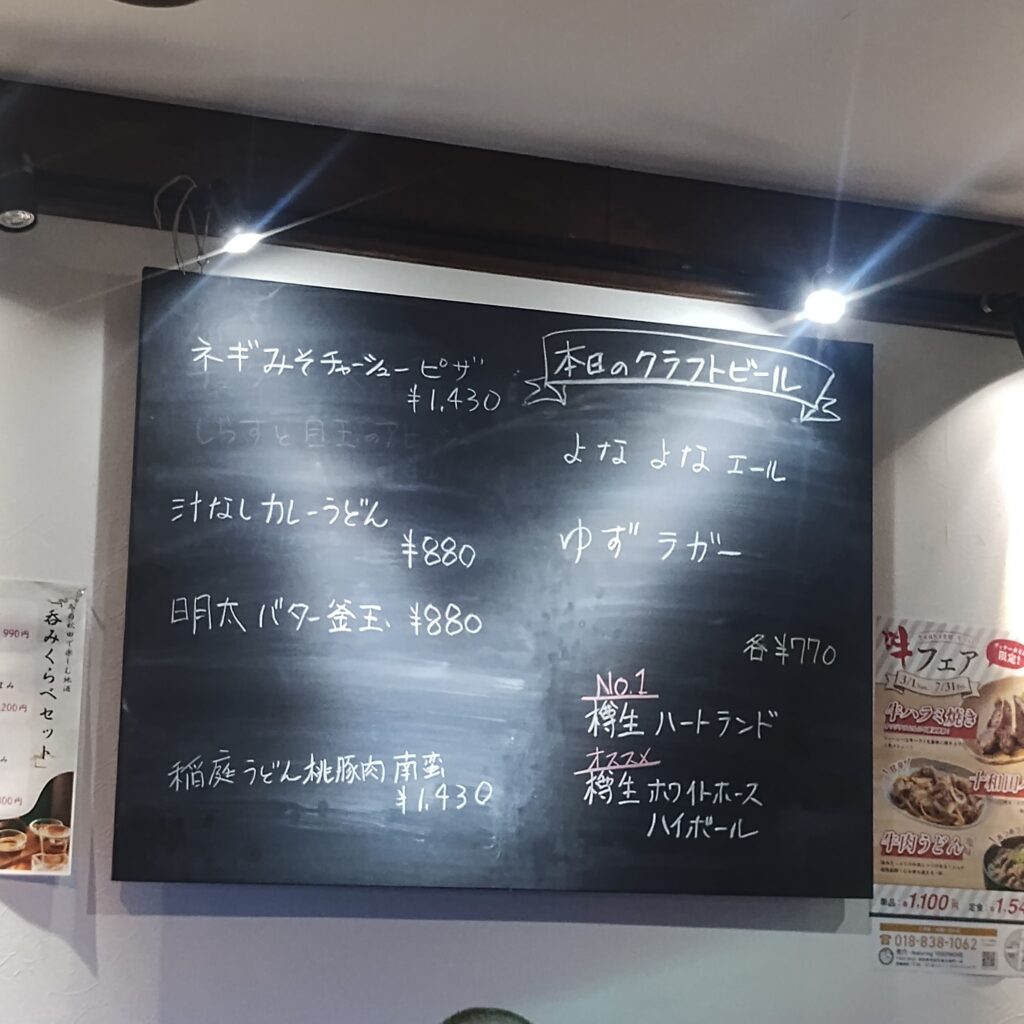 ネギみそチャーシューピザ
¥1,430
汁なしカレーうどん
¥880
明太バター釜玉 ¥880
稲庭うどん桃豚肉南蛮
¥1,430
本日のクラフトビール
よなよなエール
ゆずラガー
各¥770
No.1
樽生 ハートランド
オススメ
樽生 ホワイトホース
ハイボール
呑みくらべセット
990円
フェア
限定!
3/1
7/31
牛ハラミ焼き
十和田
牛肉うどん
単品:各1,100円 定食:各1,54
018-838-1062